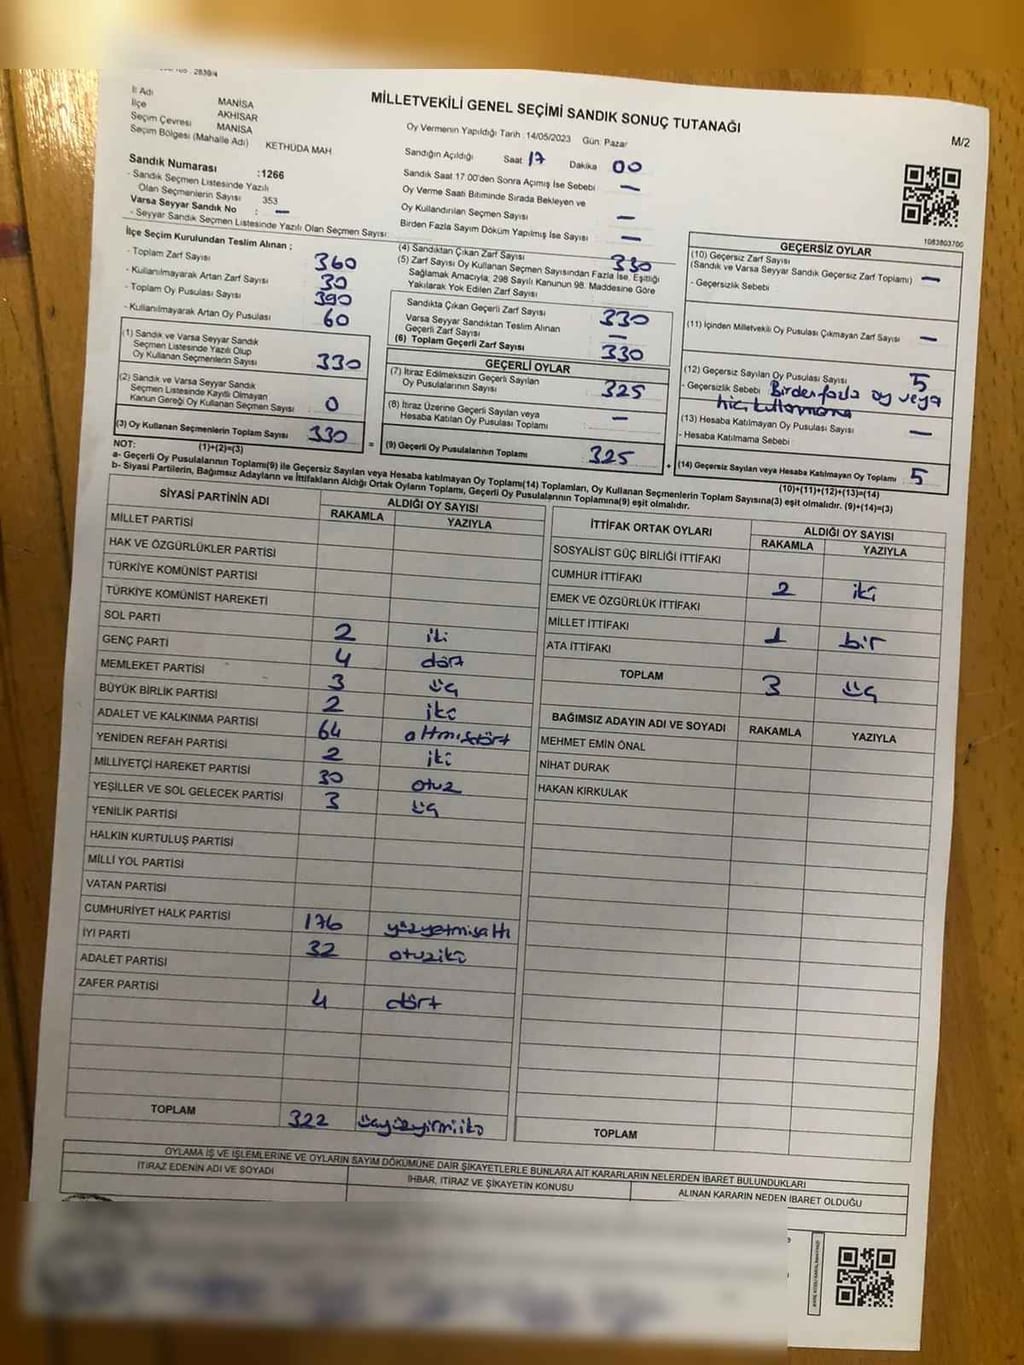 2839/4
MİLLETVEKİLİ GENEL SEÇİMİ SANDIK SONUÇ TUTANAĞI
M/2
İl Adı MANİSA
İlçe AKHİSAR
Seçim Çevresi MANİSA
Seçim Bölgesi (Mahalle Adı) KETHÜDA MAH.
Sandık Numarası :1266
- Sandık Seçmen Listesinde Yazılı
Olan Seçmenlerin Sayısı 353
Varsa Seyyar Sandık No : —
- Seyyar Sandık Seçmen Listesinde Yazılı Olan Seçmen Sayısı:
Oy Vermenin Yapıldığı Tarih :14/05/2023 Gün: Pazar
Sandığın Açıldığı Saat 17 Dakika 00
Sandık Saat 17.00'den Sonra Açımış İse Sebebi —
Oy Verme Saati Bitiminde Sırada Bekleyen ve
Oy Kullandırılan Seçmen Sayısı —
Birden Fazla Sayım Döküm Yapılmış İse Sayısı —
1083803700
İlçe Seçim Kurulundan Teslim Alınan ;
- Toplam Zarf Sayısı 360
- Kullanılmayarak Artan Zarf Sayısı 30
- Toplam Oy Pusulası Sayısı 390
- Kullanılmayarak Artan Oy Pusulası 60
(1) Sandık ve Varsa Seyyar Sandık
Seçmen Listesinde Yazılı Olup
Oy Kullanan Seçmenlerin Sayısı 330
(2) Sandık ve Varsa Seyyar Sandık
Seçmen Listesinde Kayıtlı Olmayan
Kanun Gereği Oy Kullanan Seçmen Sayısı 0
(3) Oy Kullanan Seçmenlerin Toplam Sayısı 330
(1)+(2)=(3)
(4) Sandıktan Çıkan Zarf Sayısı 330
(5) Zarf Sayısı Oy Kullanan Seçmen Sayısından Fazla İse, Eşitliği
Sağlamak Amacıyla, 298 Sayılı Kanunun 98. Maddesine Göre
Yakılarak Yok Edilen Zarf Sayısı
Sandıkta Çıkan Geçerli Zarf Sayısı 330
Varsa Seyyar Sandıktan Teslim Alınan
Geçerli Zarf Sayısı —
(6) Toplam Geçerli Zarf Sayısı 330
GEÇERLİ OYLAR
(7) İtiraz Edilmeksizin Geçerli Sayılan
Oy Pusulalarının Sayısı 325
(8) İtiraz Üzerine Geçerli Sayılan veya
Hesaba Katılan Oy Pusulası Toplamı —
= (9) Geçerli Oy Pusulalarının Toplamı 325 +
GEÇERSİZ OYLAR
(10) Geçersiz Zarf Sayısı
(Sandık ve Varsa Seyyar Sandık Geçersiz Zarf Toplamı) —
- Geçersizlik Sebebi
(11) İçinden Milletvekili Oy Pusulası Çıkmayan Zarf Sayısı —
(12) Geçersiz Sayılan Oy Pusulası Sayısı 5
- Geçersizlik Sebebi Birden fazla oy veya
hiç kullanmama
(13) Hesaba Katılmayan Oy Pusulası Sayısı —
- Hesaba Katılmama Sebebi
(14) Geçersiz Sayılan veya Hesaba Katılmayan Oy Toplamı 5
(10)+(11)+(12)+(13)=(14)
NOT:
a- Geçerli Oy Pusulalarının Toplamı(9) ile Geçersiz Sayılan veya Hesaba katılmayan Oy Toplamı(14) Toplamları, Oy Kullanan Seçmenlerin Toplam Sayısına(3) eşit olmalıdır. (9)+(14)=(3)
b- Siyasi Partilerin, Bağımsız Adayların ve İttifakların Aldığı Ortak Oyların Toplamı, Geçerli Oy Pusulalarının Toplamına(9) eşit olmalıdır.
SİYASİ PARTİNİN ADI ALDIĞI OY SAYISI
RAKAMLA YAZIYLA
MİLLET PARTİSİ
HAK VE ÖZGÜRLÜKLER PARTİSİ
TÜRKİYE KOMÜNİST PARTİSİ
TÜRKİYE KOMÜNİST HAREKETİ
SOL PARTİ
GENÇ PARTİ 2 iki
MEMLEKET PARTİSİ 4 dört
BÜYÜK BİRLİK PARTİSİ 3 üç
ADALET VE KALKINMA PARTİSİ 2 iki
YENİDEN REFAH PARTİSİ 64 altmışdört
MİLLİYETÇİ HAREKET PARTİSİ 2 iki
YEŞİLLER VE SOL GELECEK PARTİSİ 30 otuz
YENİLİK PARTİSİ 3 üç
HALKIN KURTULUŞ PARTİSİ
MİLLİ YOL PARTİSİ
VATAN PARTİSİ
CUMHURİYET HALK PARTİSİ 176 yüzyetmişaltı
İYİ PARTİ 32 otuziki
ADALET PARTİSİ
ZAFER PARTİSİ 4 dört
TOPLAM 322 üçyüzyirmiiki
İTTİFAK ORTAK OYLARI ALDIĞI OY SAYISI
RAKAMLA YAZIYLA
SOSYALİST GÜÇ BİRLİĞİ İTTİFAKI
CUMHUR İTTİFAKI 2 iki
EMEK VE ÖZGÜRLÜK İTTİFAKI
MİLLET İTTİFAKI 1 bir
ATA İTTİFAKI
TOPLAM 3 üç
BAĞIMSIZ ADAYIN ADI VE SOYADI RAKAMLA YAZIYLA
MEHMET EMİN ÖNAL
NİHAT DURAK
HAKAN KIRKULAK
TOPLAM
OYLAMA İŞ VE İŞLEMLERİNE VE OYLARIN SAYIM DÖKÜMÜNE DAİR ŞİKAYETLERLE BUNLARA AİT KARARLARIN NELERDEN İBARET BULUNDUKLARI
İTİRAZ EDENİN ADI VE SOYADI İHBAR, İTİRAZ VE ŞİKAYETİN KONUSU ALINAN KARARIN NEDEN İBARET OLDUĞU